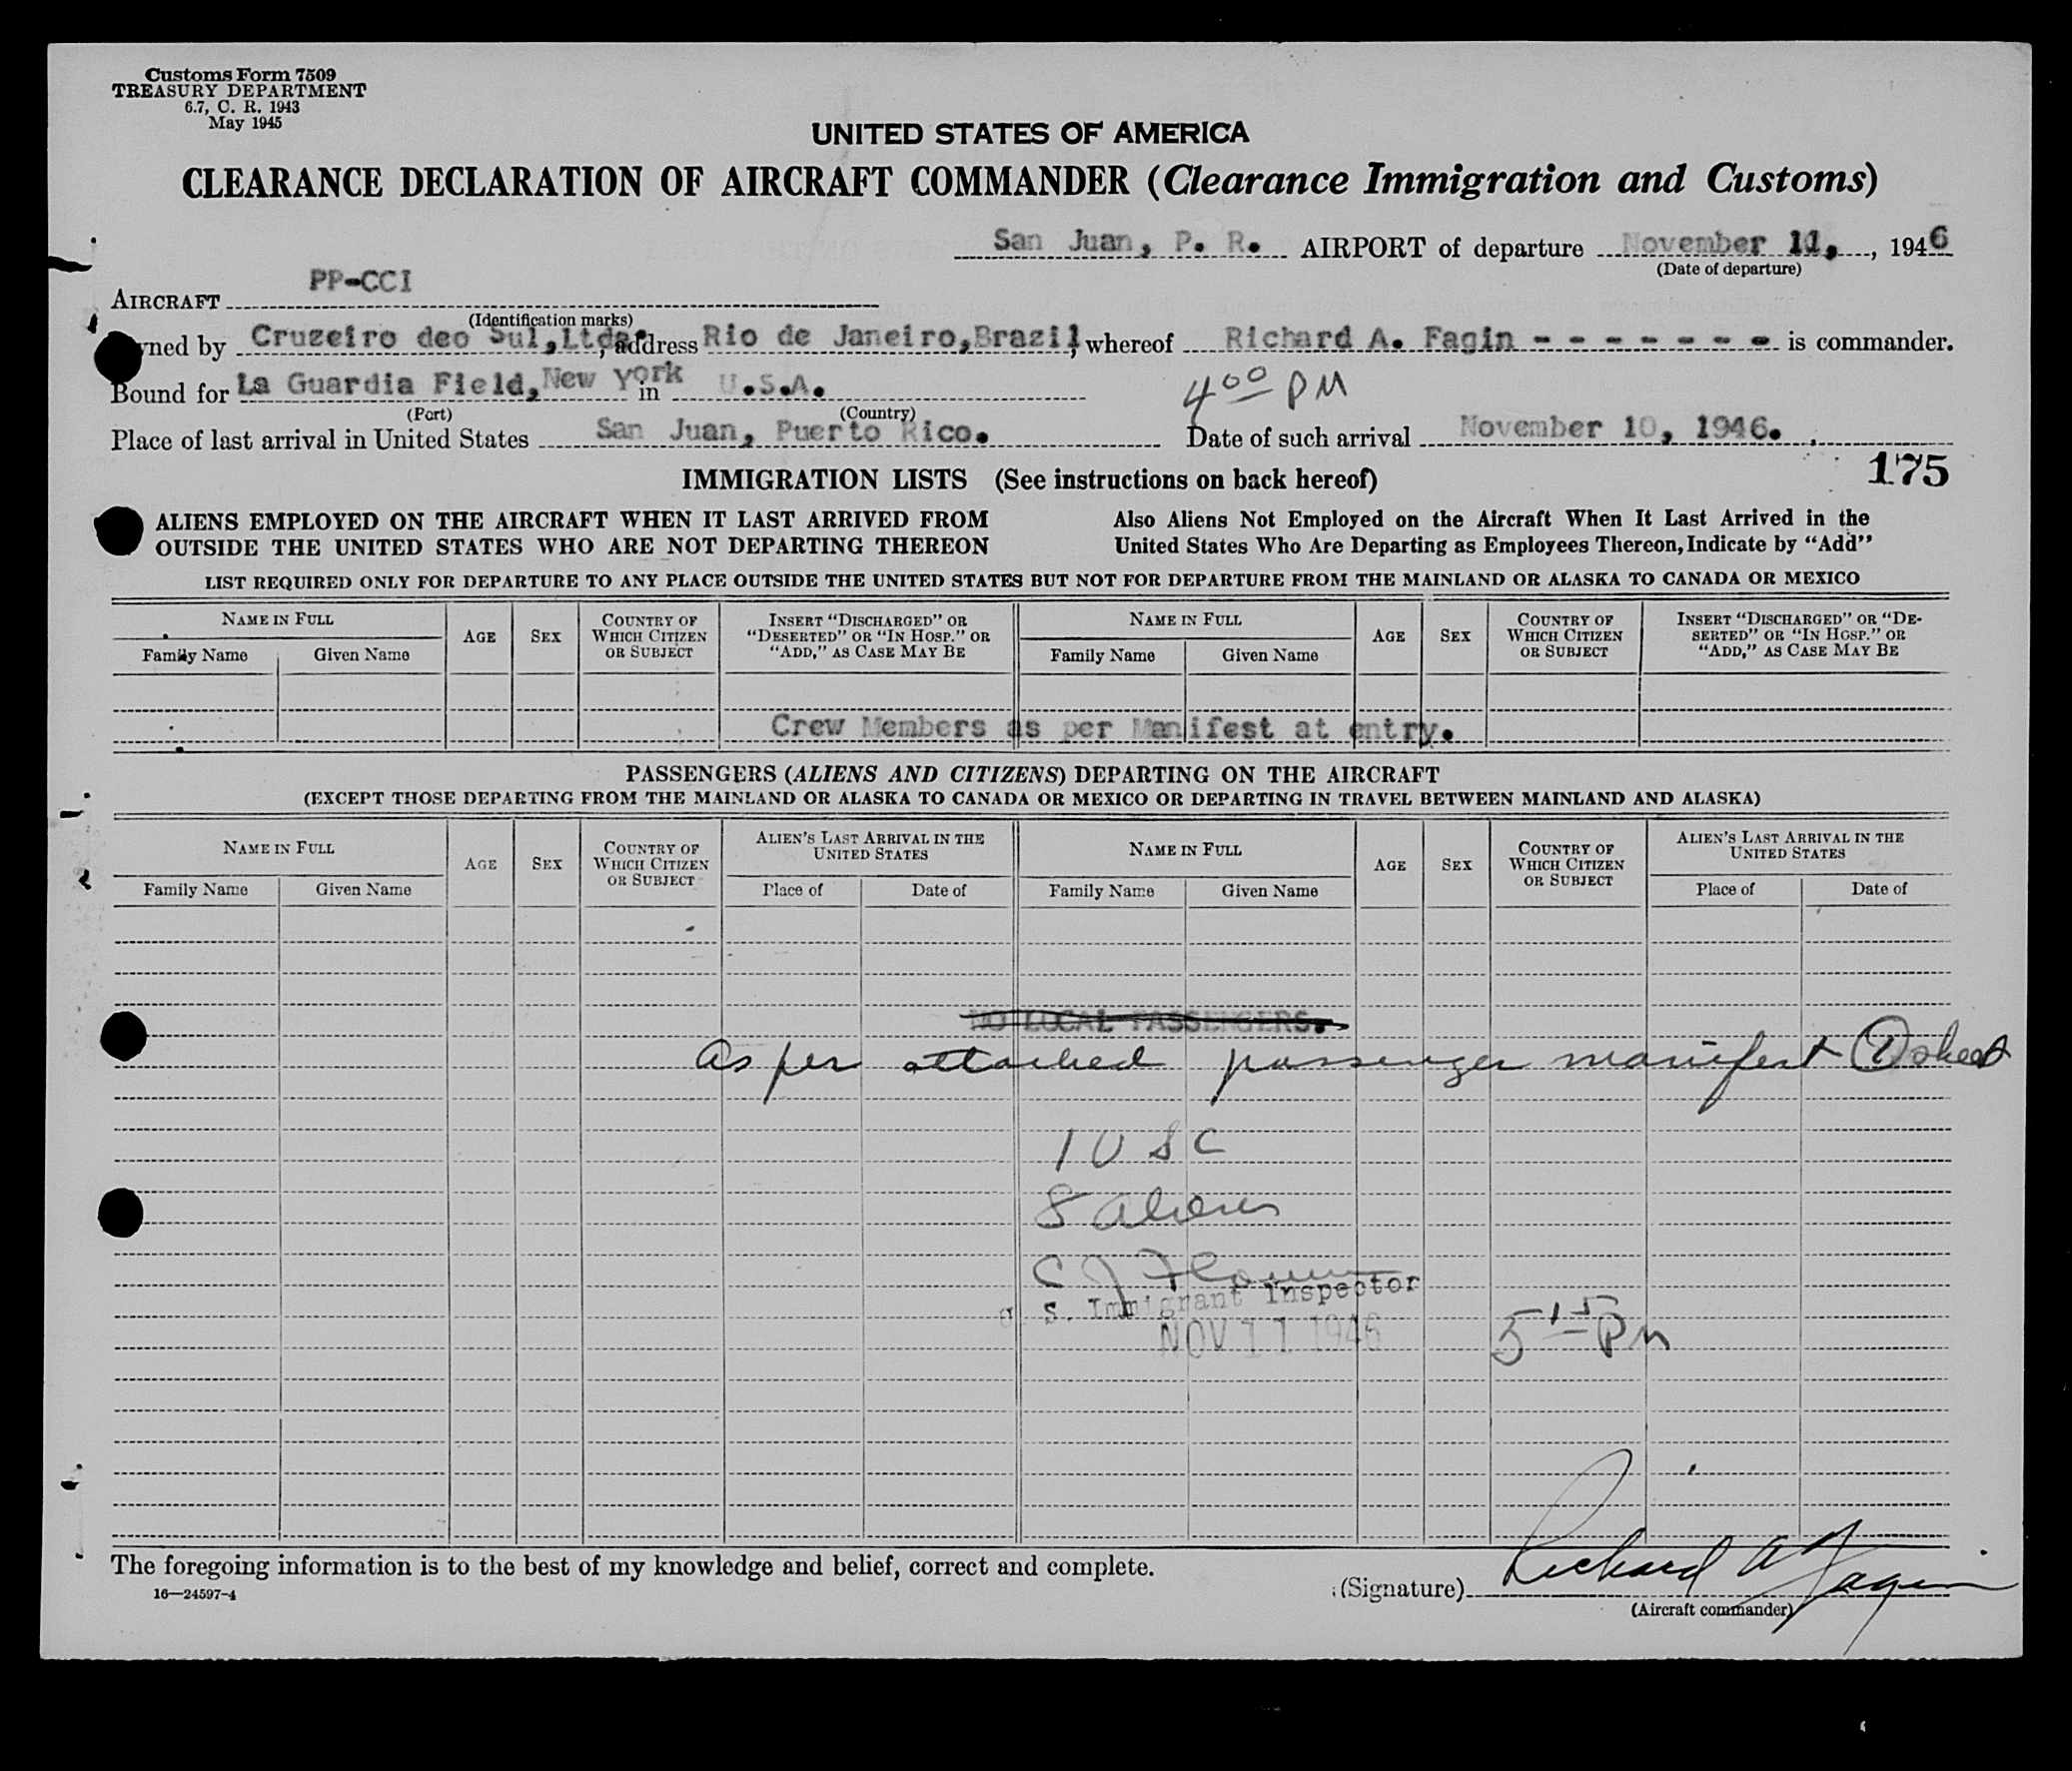 Customs Form 7509
TREASURY DEPARTMENT
6.7, C. R. 1943
May 1945
UNITED STATES OF AMERICA
CLEARANCE DECLARATION OF AIRCRAFT COMMANDER (Clearance Immigration and Customs)
San Juan, P. R. AIRPORT of departure November 11, , 1946
(Date of departure)
AIRCRAFT PP-CCI
(Identification marks)
ned by Cruzeiro deo Sul,Ltda. , address Rio de Janeiro,Brazil, whereof Richard A. Fagin - - - - - - - is commander.
Bound for La Guardia Field,New York in U.S.A. 4 00 PM
(Port) (Country)
Place of last arrival in United States San Juan, Puerto Rico. Date of such arrival November 10, 1946.
175
IMMIGRATION LISTS (See instructions on back hereof)
ALIENS EMPLOYED ON THE AIRCRAFT WHEN IT LAST ARRIVED FROM
OUTSIDE THE UNITED STATES WHO ARE NOT DEPARTING THEREON
Also Aliens Not Employed on the Aircraft When It Last Arrived in the
United States Who Are Departing as Employees Thereon, Indicate by "Add"
LIST REQUIRED ONLY FOR DEPARTURE TO ANY PLACE OUTSIDE THE UNITED STATES BUT NOT FOR DEPARTURE FROM THE MAINLAND OR ALASKA TO CANADA OR MEXICO
NAME IN FULL
Family Name Given Name
AGE
SEX
COUNTRY OF
WHICH CITIZEN
OR SUBJECT
INSERT "DISCHARGED" OR
"DESERTED" OR "IN HOSP." OR
"ADD," AS CASE MAY BE
NAME IN FULL
Family Name Given Name
AGE
SEX
COUNTRY OF
WHICH CITIZEN
OR SUBJECT
INSERT "DISCHARGED" OR "DE-
SERTED" OR "IN HOSP." OR
"ADD," AS CASE MAY BE
Crew Members as per Manifest at entry.
PASSENGERS (ALIENS AND CITIZENS) DEPARTING ON THE AIRCRAFT
(EXCEPT THOSE DEPARTING FROM THE MAINLAND OR ALASKA TO CANADA OR MEXICO OR DEPARTING IN TRAVEL BETWEEN MAINLAND AND ALASKA)
NAME IN FULL
Family Name Given Name
AGE
SEX
COUNTRY OF
WHICH CITIZEN
OR SUBJECT
ALIEN'S LAST ARRIVAL IN THE
UNITED STATES
Place of Date of
NAME IN FULL
Family Name Given Name
AGE
SEX
COUNTRY OF
WHICH CITIZEN
OR SUBJECT
ALIEN'S LAST ARRIVAL IN THE
UNITED STATES
Place of Date of
NO LOCAL PASSENGERS.
As per attached passenger manifest 1 sheet
1 USC
8 aliens
C J
U. S. Immigrant Inspector
NOV 11 1946
5 15 PM
The foregoing information is to the best of my knowledge and belief, correct and complete.
16—24597-4
(Signature) Richard A Fagin
(Aircraft commander)